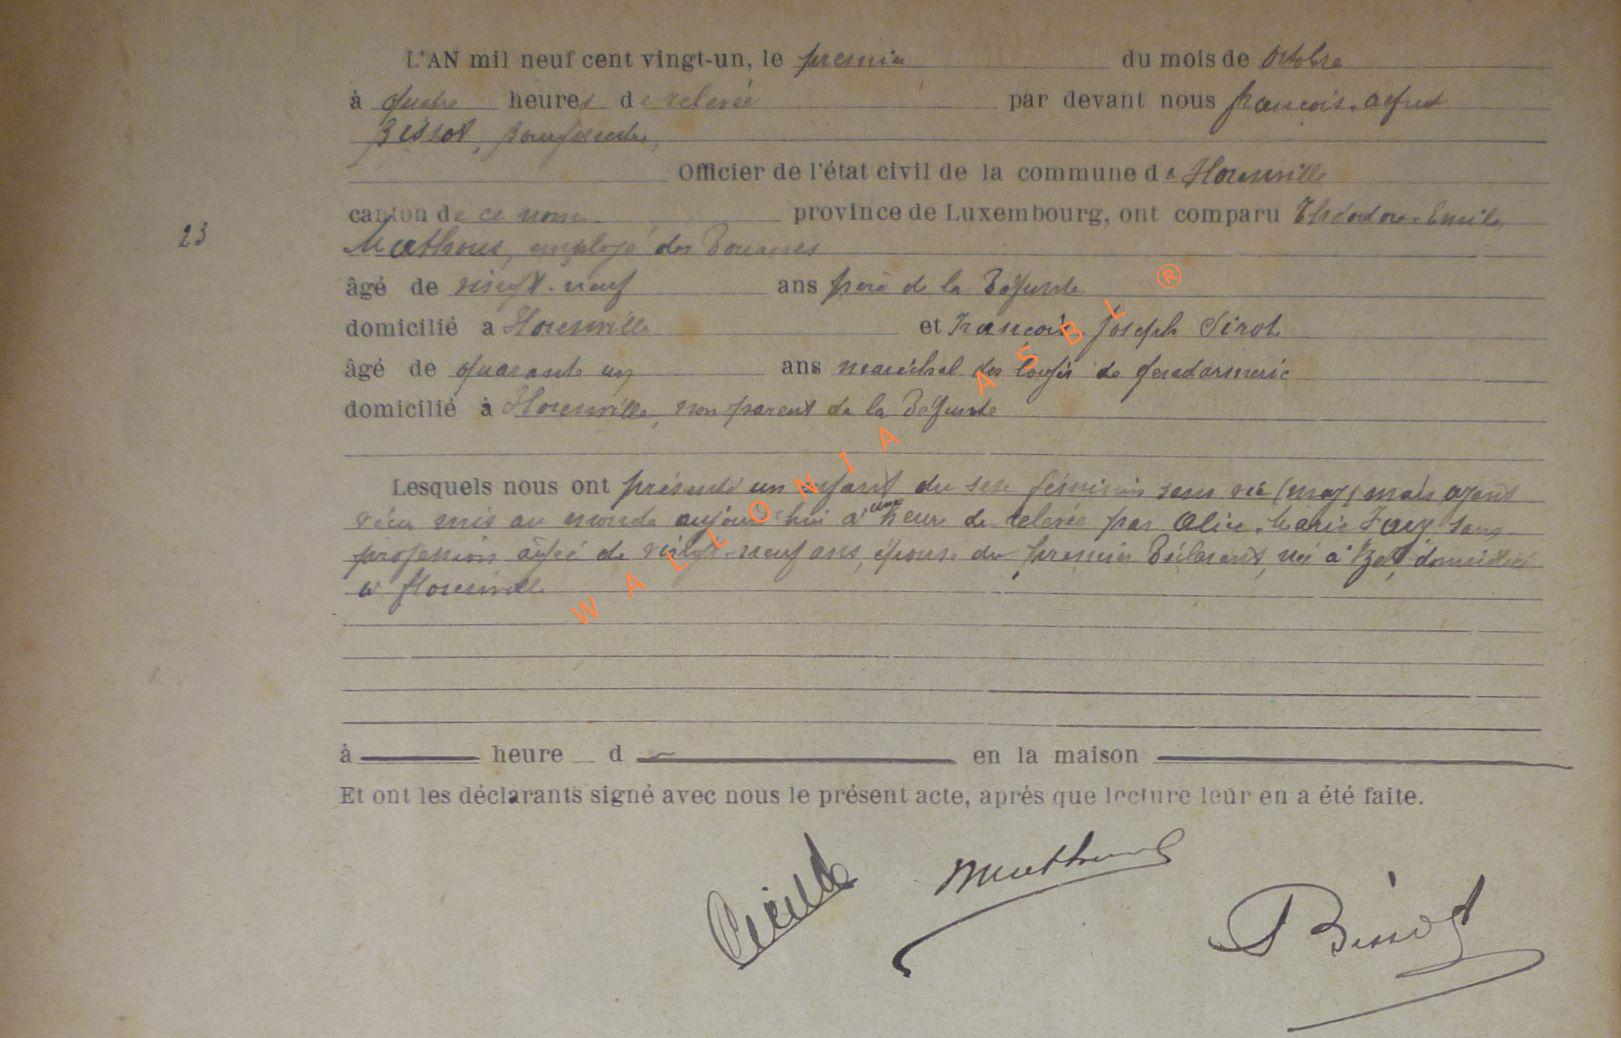 L'AN mil neuf cent vingt-un, le premier du mois de Octobre
à quatre heures de relevée par devant nous François-Alfred
Bissot, Bourgmestre,
Officier de l'état civil de la commune de Florenville
23
canton de ce nom province de Luxembourg, ont comparu Théodore-Emile
employé des Douanes
âgé de vingt-neuf ans père de la Défunte
domicilié à Florenville et François-Joseph
âgé de quarante un ans maréchal des logis de gendarmerie
domicilié à Florenville, non parent de la Défunte
Lesquels nous ont présenté un enfant du sexe féminin sans vie mais ayant
vécu mis au monde aujourd'hui à une heure de relevée par Alice-Marie sans
profession âgée de vingt-neuf ans, épouse du premier Déclarant, née à Izel, domiciliée
à Florenville
à heure d en la maison
Et ont les déclarants signé avec nous le présent acte, après que lecture leur en a été faite.
Bissot
WALLONIA ASBL ®